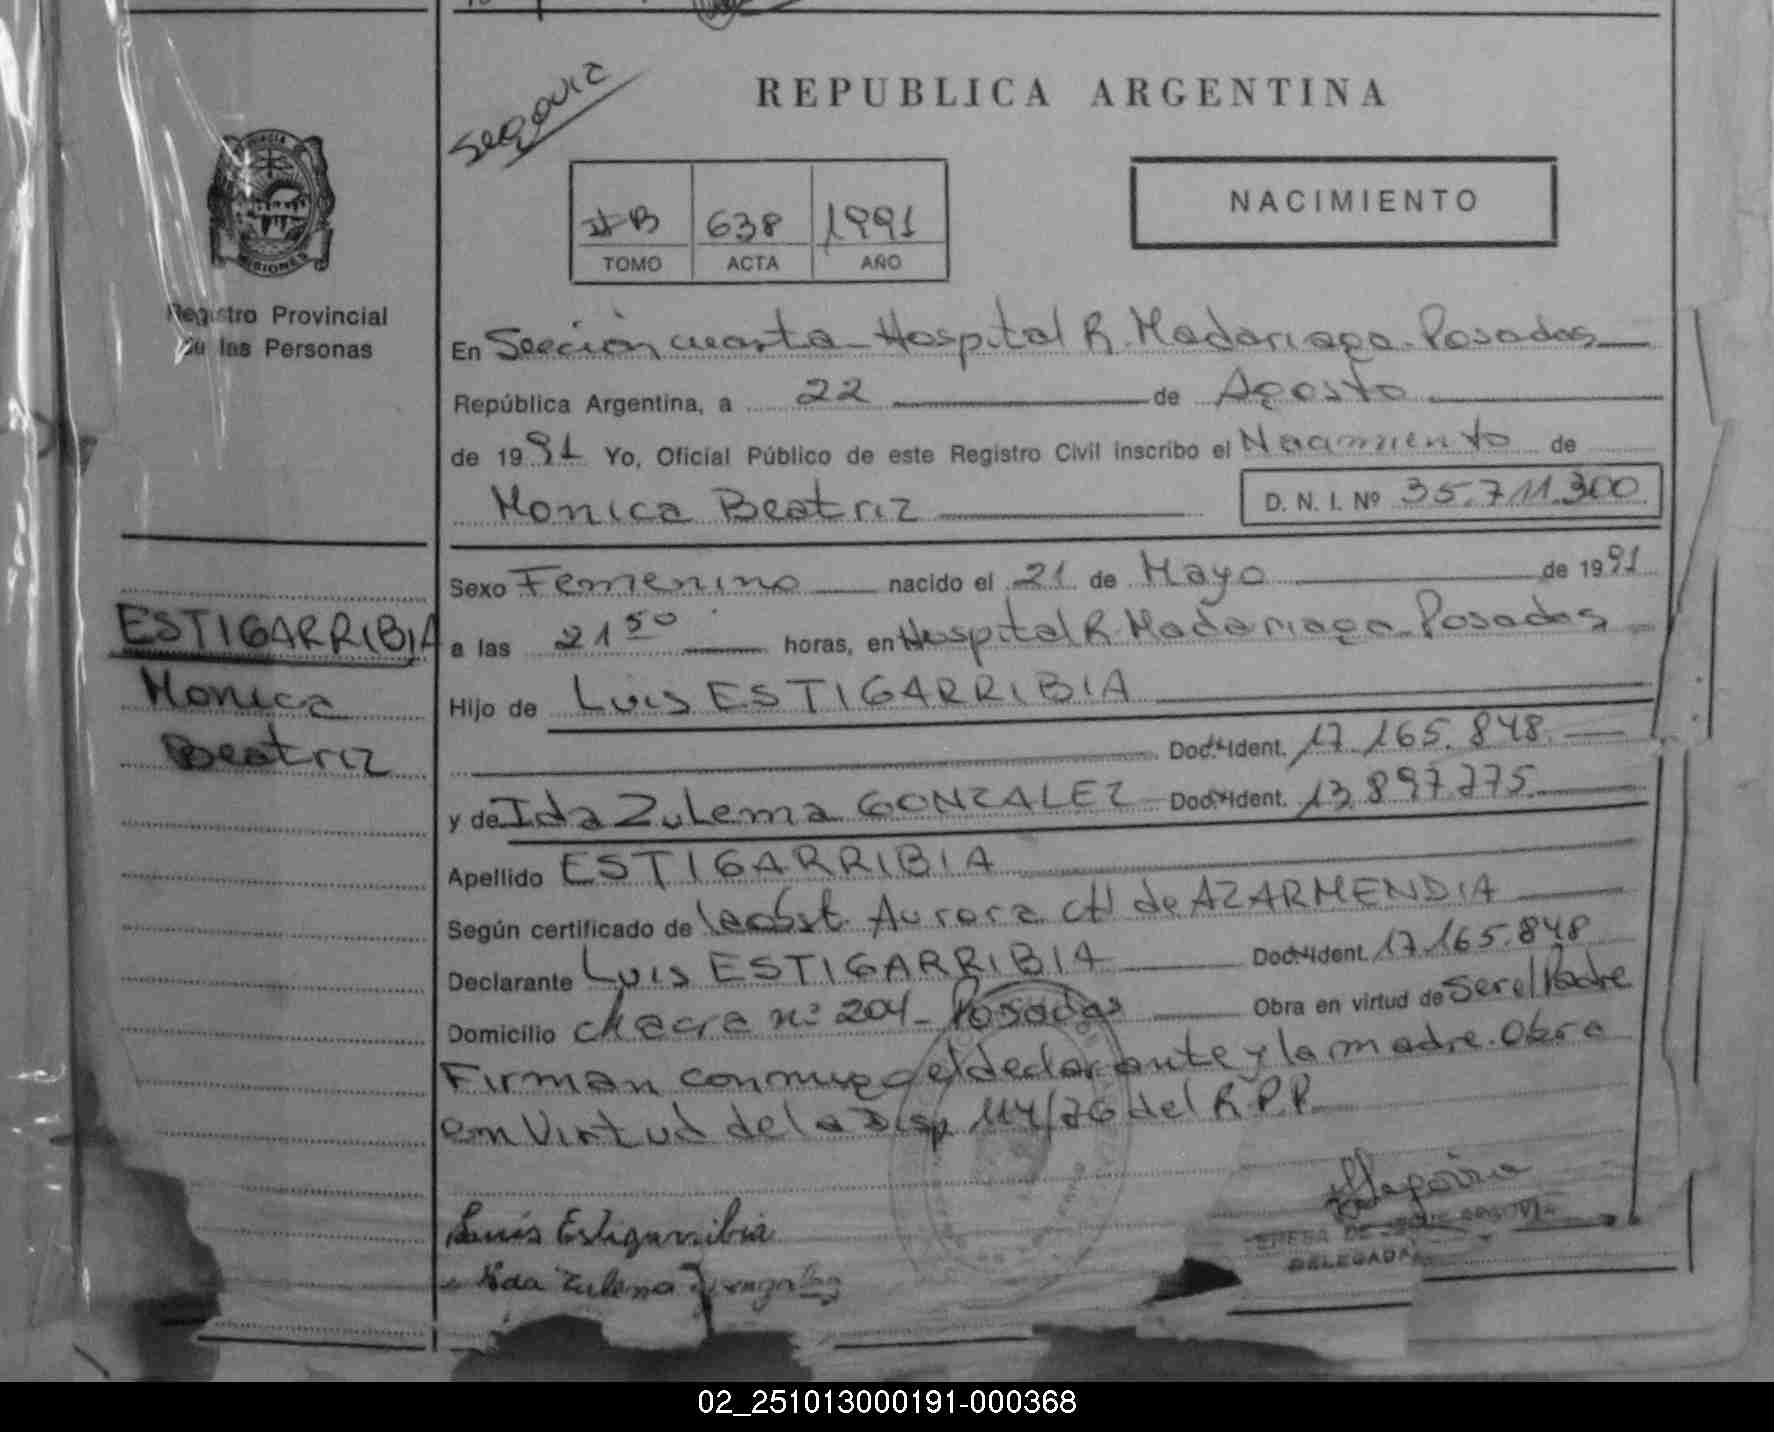 Segovia
REPUBLICA ARGENTINA
NACIMIENTO
638 1991
TOMO ACTA AÑO
PROVINCIA
MISIONES
Registro Provincial
de las Personas
En Sección cuarta - Hospital R. Madariaga - Posadas
República Argentina, a 22 de Agosto
de 1991 Yo, Oficial Público de este Registro Civil inscribo el Nacimiento de
Monica Beatriz D. N. I. Nº 35.711.300
Sexo Femenino nacido el 21 de Mayo de 1991
ESTIGARRIBIA
Monica
Beatriz
a las 21 50 horas, en Hospital R. Madariaga - Posadas
Hijo de Luis ESTIGARRIBIA
Doc. Ident. 17.165.848
y de Ida Zulema GONZALEZ Doc. Ident. 13.897.775
Apellido ESTIGARRIBIA
Según certificado de la obst. Aurora CH de AZARMENDIA
Declarante Luis ESTIGARRIBIA Doc. Ident. 17.165.848
Domicilio Chacra nº 204 - Posadas Obra en virtud de ser el Padre
Firman conmigo el declarante y la madre. Obra
en Virtud de la Disp 114/76 del R.P.P.
Luis Estigarribia
Ida Zulema Gonzalez
DELEGADA
02_251013000191-000368